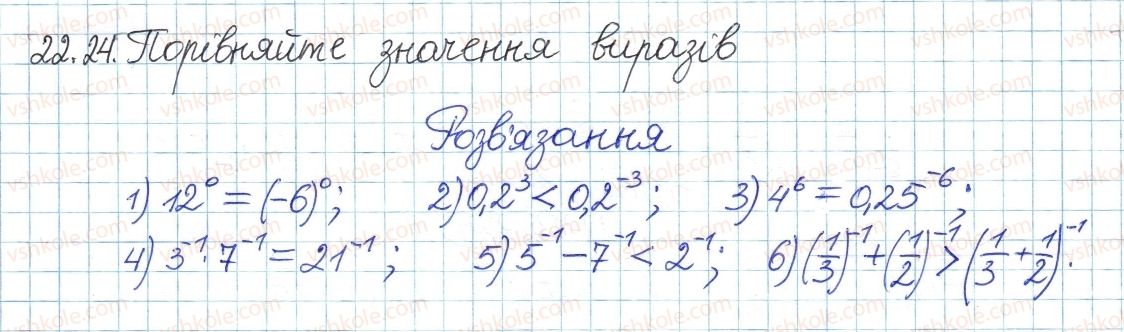 22.24. Порівняйте значення виразів
Розв'язання
1) 12⁰ = (-6)⁰; 2) 0,2³ < 0,2⁻³; 3) 4⁶ = 0,25⁻⁶;
4) 3⁻¹ · 7⁻¹ = 21⁻¹; 5) 5⁻¹ - 7⁻¹ < 2⁻¹; 6) (1/3)⁻¹ + (1/2)⁻¹ > (1/3 + 1/2)⁻¹.